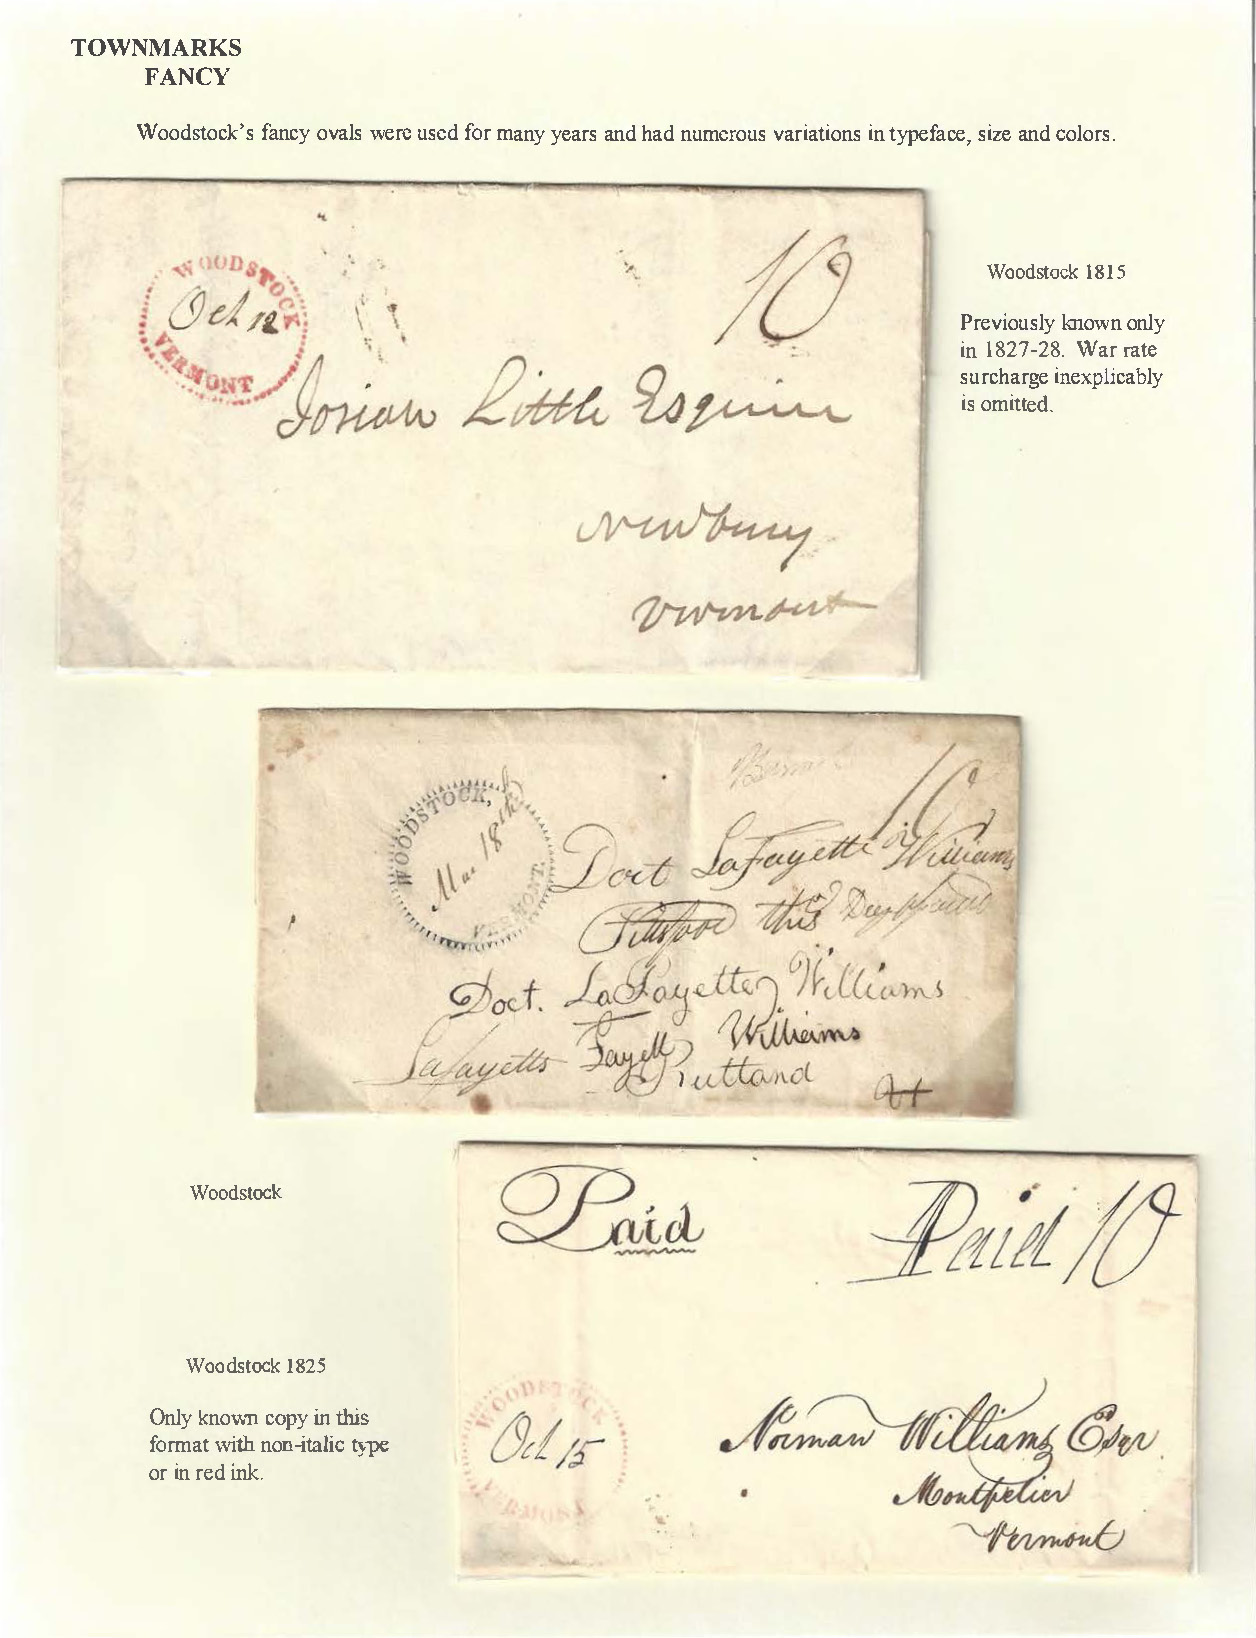 TOWNMARKS
FANCY
Woodstock's fancy ovals were used for many years and had numerous variations in typeface, size and colors.
WOODSTOCK
Oct 12
VERMONT
10
Josiah Little Esquire
Newbury
Vermont
Woodstock 1815
Previously known only
in 1827-28. War rate
surcharge inexplicably
is omitted.
WOODSTOCK,
Mar 18th
VERMONT.
10
Doct LaFayette Williams
this
Doct. LaFayette Williams
Lafayette Fayett Williams
Rutland
Vt
Woodstock
Paid
Paid 10
Woodstock 1825
Only known copy in this
format with non-italic type
or in red ink.
WOODSTOCK
Oct 15
VERMONT
Norman Williams Esqr
Montpelier
Vermont